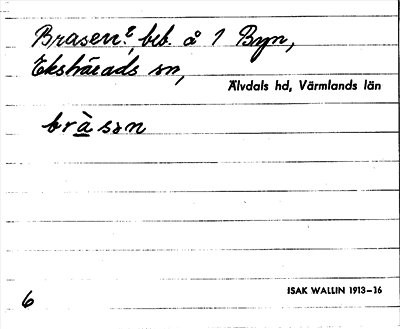 Brasen?, beb. å 1 Byn,
Ekshärads sn,
Älvdals hd, Värmlands län
brà sən
6
ISAK WALLIN 1913–16